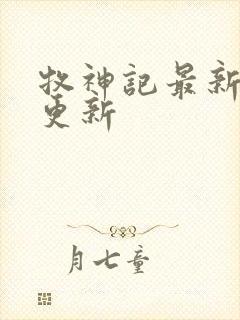 牧神記最新
更新
月七童